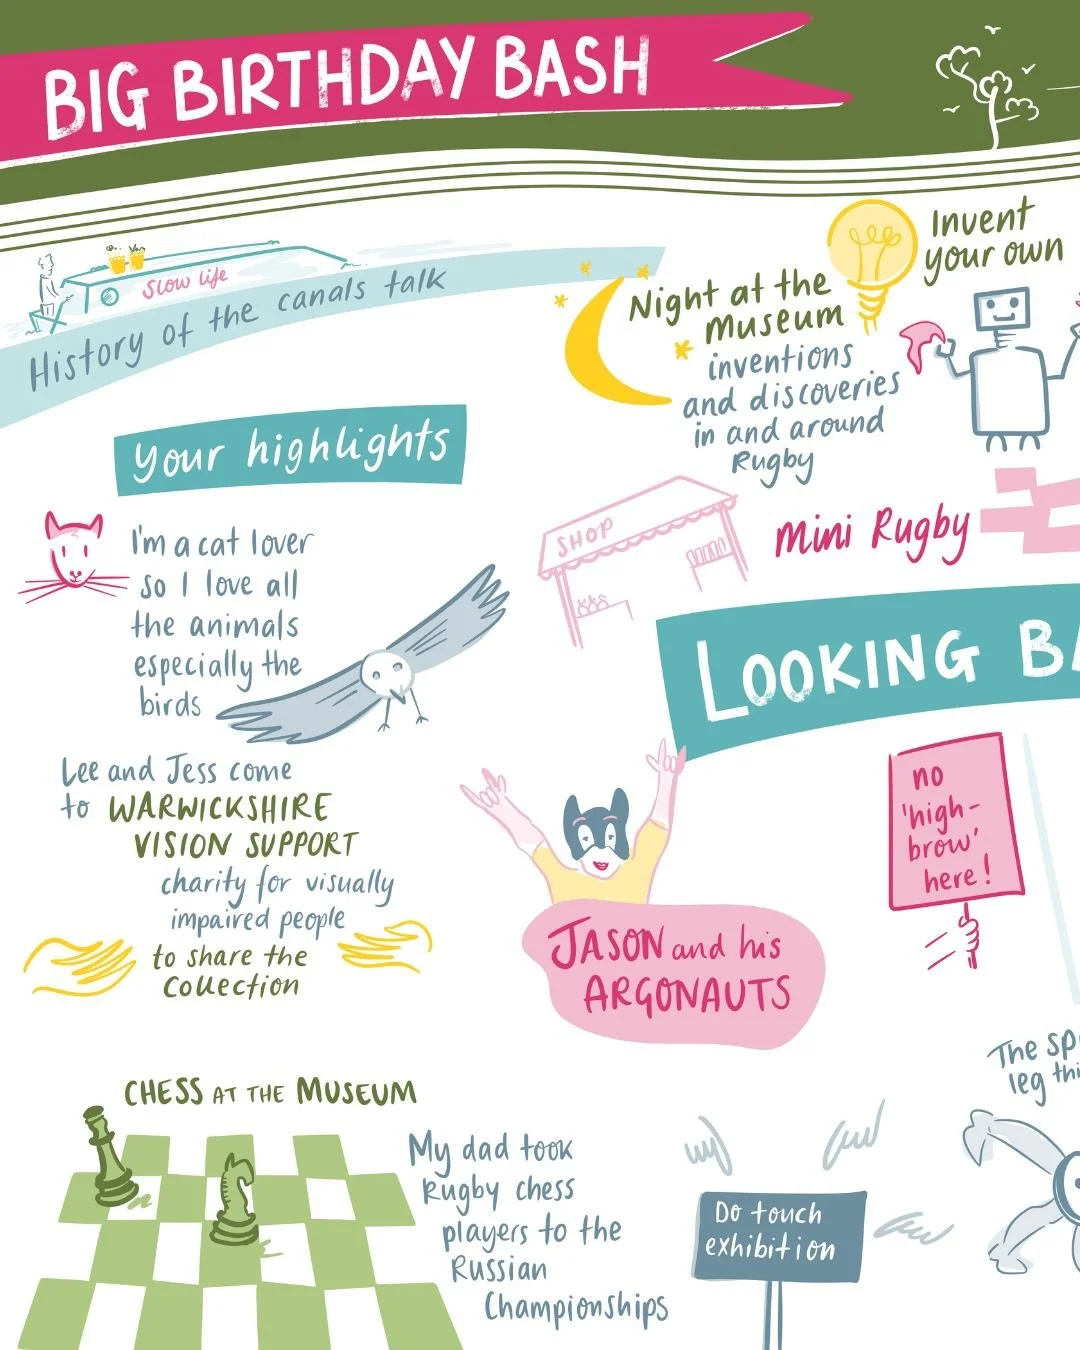 BIG BIRTHDAY BASH
Slow life
History of the canals talk
Night at the
Museum
inventions
and discoveries
in and around
Rugby
Invent
your own
SHOP
Mini Rugby
Your highlights
I'm a cat lover
so I love all
the animals
especially the
birds
LOOKING
Lee and Jess come
to WARWICKSHIRE
VISION SUPPORT
charity for visually
impaired people
to share the
Collection
no
'high-
brow'
here!
JASON and his
ARGONAUTS
The
leg
CHESS AT THE MUSEUM
My dad took
Rugby chess
players to the
Russian
Championships
Do touch
exhibition